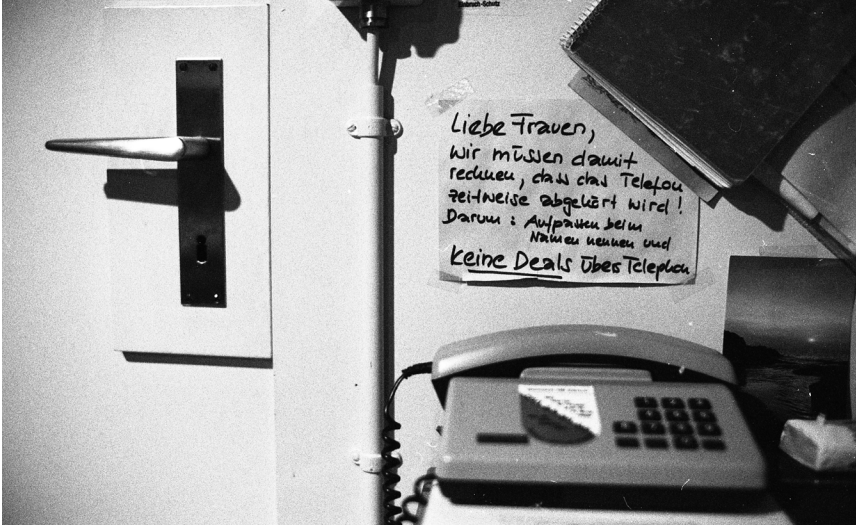 Einbruch-Schutz
Liebe Frauen,
wir müssen damit
rechnen, dass das Telefon
zeitweise abgehört wird!
Darum: Aufpassen beim
Namen nennen und
Keine Deals übers Telephon